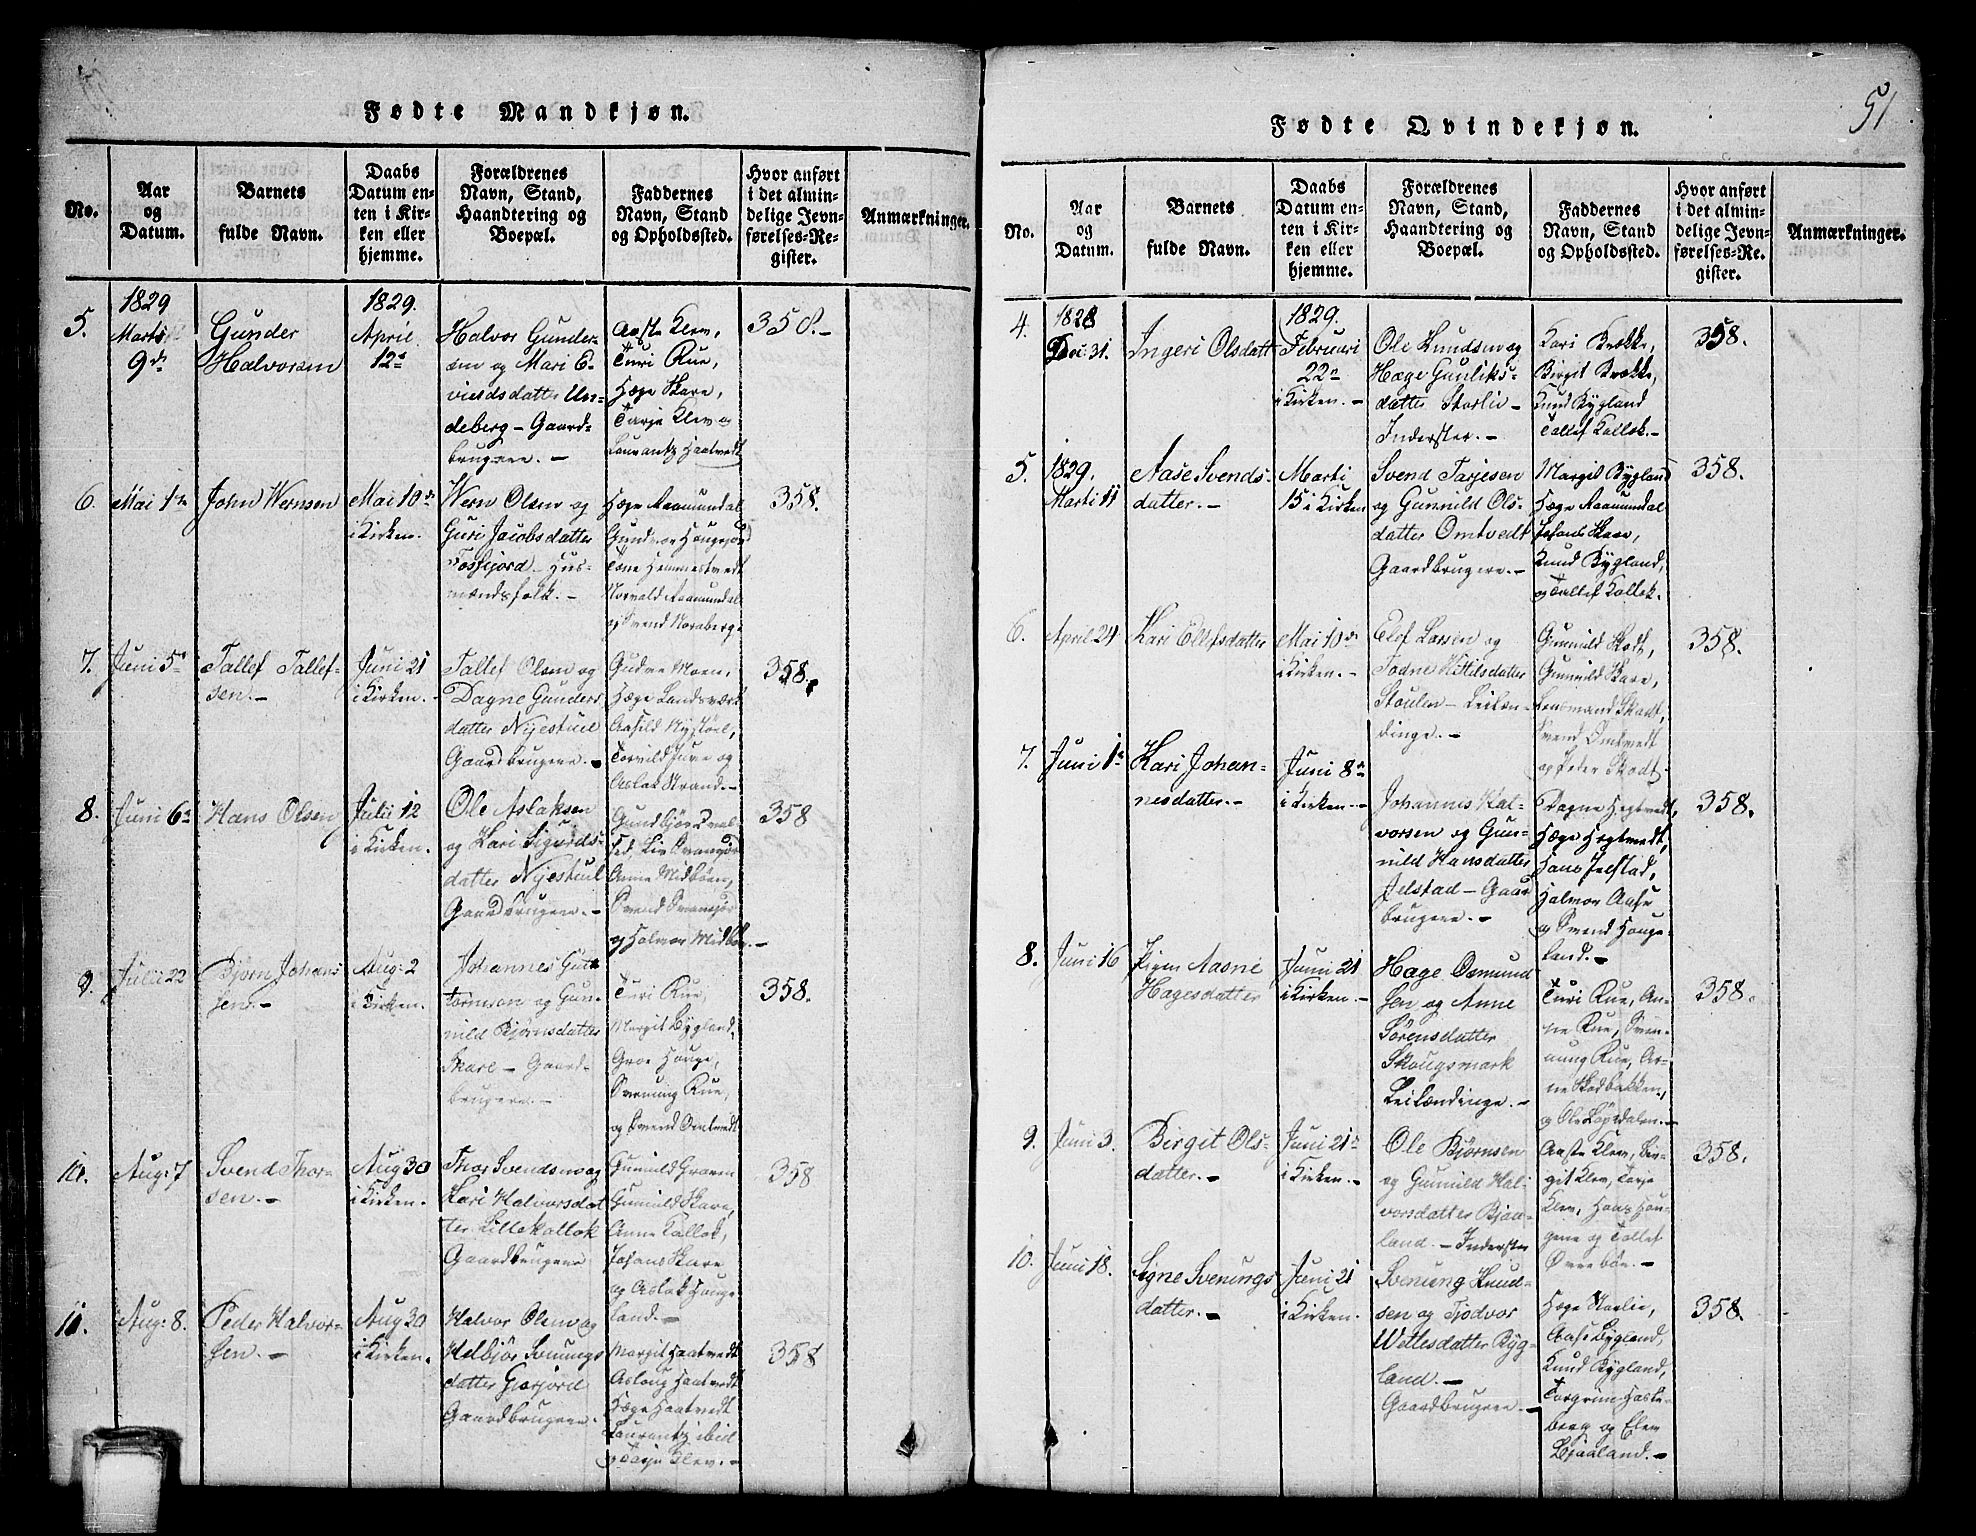 Fødte Mandkjøn.
No.
Aar
og
Datum.
Barnets
fulde Navn.
Daabs
Datum en-
ten i Kir-
ken eller
hjemme.
Forældrenes
Navn, Stand,
Haandtering og
Boepæl.
Faddernes
Navn, Stand
og Opholdssted.
Hvor anført
i det almin-
delige Jevn-
førelses-Re-
gister.
Anmærkninger.
5.
1829
Marts
9de
Gunder
Halvorsen
1829.
April
12te
Halvor Gunder-
sen og Mari E-
vindsdatter Un-
deberg – Gaard-
brugere. –
Aaste Klev,
Turi Rue,
Hæge Skare,
Tarje Klev og
Laurantz Haatvedt
358. –
6.
Mai 1te
John Wernsen
Mai 10de
i Kirken.
Wern Olsen og
Guri Jacobsdatter
Fossijord – Hus-
mændsfolk. –
Hæge Aaamundal
Gundvor Haugejord
Tone Hemmestvedt
Norvald Aaamundal
og Svend Noraberg
358.
7.
Juni 5te
Tallef Tallef-
sen. –
Juni 21
i Kirken. –
Tallef Olsen og
Dagne Gunders
datter Nyestuel
Gaardbrugere. –
Gudve Moen,
Hæge Landsværk
Aasild Nystøel,
Torvild Juve og
Aslak Strand. –
358.
8.
Juni 6te
Hans Olsen
Julii 12
i Kirken.
Ole Aslaksen
og Kari Sigurds-
datter Nyestuel
Gaardbrugere. –
Gundbjør
Liv Svanejor
Anne Midbøen,
Svend Svanejor
og Halvor Midbøe. –
358
9.
Julii 22
Bjørn Johans
sen. –
Aug: 2
i Kirken.
Johannes Gut-
tormson og Gun-
nild Bjørnsdatter
Skare – Gaard-
brugere. –
Turi Rue,
Margit Bygland,
Groe Hauge,
Svenung Rue,
og Svend Omtvedt
358.
10.
Aug: 7
Svend Thor-
sen. –
Aug 30
i Kirken.
Thor Svendsen og
Kari Halvorsdat
ter Lillekallok
Gaardbrugere
Gunnild Graven
Gunnild Skare,
Anne Kallok,
Johans Skare
og Aslak Hauge
land. –
358
11.
Aug: 8.
Peder Halvor-
sen. –
Aug 30
i Kirken.
Halvor Olsen og
Helbjør Svenungs
datter Gjersjord
Gaardbrugere.
Margit Haatvedt
Aslaug Haatvedt
Hæge Haatvedt
Laurantz ibid
og Tarje Klev. –
358
51
Fødte Qvindekjøn.
No.
Aar
og
Datum.
Barnets
fulde Navn.
Daabs
Datum en-
ten i Kir-
ken eller
hjemme.
Forældrenes
Navn, Stand,
Haandtering og
Boepæl.
Faddernes
Navn, Stand
og Opholdssted.
Hvor anført
i det almin-
delige Jevn-
førelses-Re-
gister.
Anmærkninger.
4.
1828
Dec: 31.
Ingeri Olsdatt
1829.
Februari
22de
i Kirken. –
Ole Knudsen og
Hæge Gunliks-
datter Storlie –
Inderster. –
Kari Brække,
Birgit Brække,
Knud Bygland
Tallef Kallok. –
358.
5.
1829.
Marti 11
Aase Svends-
datter. –
Marti
15 i Kirken
Svend Tarjesen
og Gunnild Ols-
datter Omtvedt
Gaardbrugere. –
Margit Bygland
Hæge Aaamundal
Johans Skare,
Knud Bygland,
og Tallef Kallok.
358.
6.
April 24
Kari Elefsdatter
Mai 10de
i Kirken. –
Elef Larsen og
Togne Kittilsdatter
Stoulen – Leilæn-
dinge. –
Gunnild Skodt,
Gunnild Skare,
Lensmand Skodt,
Svend Omtvedt
og Peder Skodt.
358.
7.
Juni 1te
Kari Johan-
nesdatter. –
Juni 8de
i Kirken. –
Johannis Hal-
vorsen og Gun-
nild Hansdatter
Jelstad – Gaar
brugere. –
Dagne Hegtvedt,
Hæge Hegtvedt,
Hans Jelstad,
Halvor Aase
og Svend Hauge-
land. –
358.
8.
Juni 16
Pigen Aasne
Hagesdatter
Juni 21
i Kirken. –
Hage Osmund
sen og Anne
Sørensdatter
Skougsmark
Leilændinge. –
Turi Rue, An-
ne Rue, Sven-
nung Rue, Ar-
ne Skodbakken,
og Ole Løgedalen. –
358.
9.
Juni 3.
Birgit Ols-
datter. –
Juni 21de
i Kirken. –
Ole Bjørnsen
og Gunnild Hal-
vorsdatter Bjaa-
land. – Inderster
Aaste Klev, Bir-
git Klev, Tarje
Klev, Hans Hau-
gene og Tallef
Øvrebøe. –
358.
10.
Juni 18.
Signe Svenungs
datter. –
Juni 21
i Kirken.
Svenung Knud-
sen og Tjodvor
Wetlesdatter Byg-
land. –
Gaardbrugere. –
Hæge Storlie,
Aase Bygland,
Knud Bygland,
Torgrim Haste-
berg og Elev
Bjaaland. –
358.